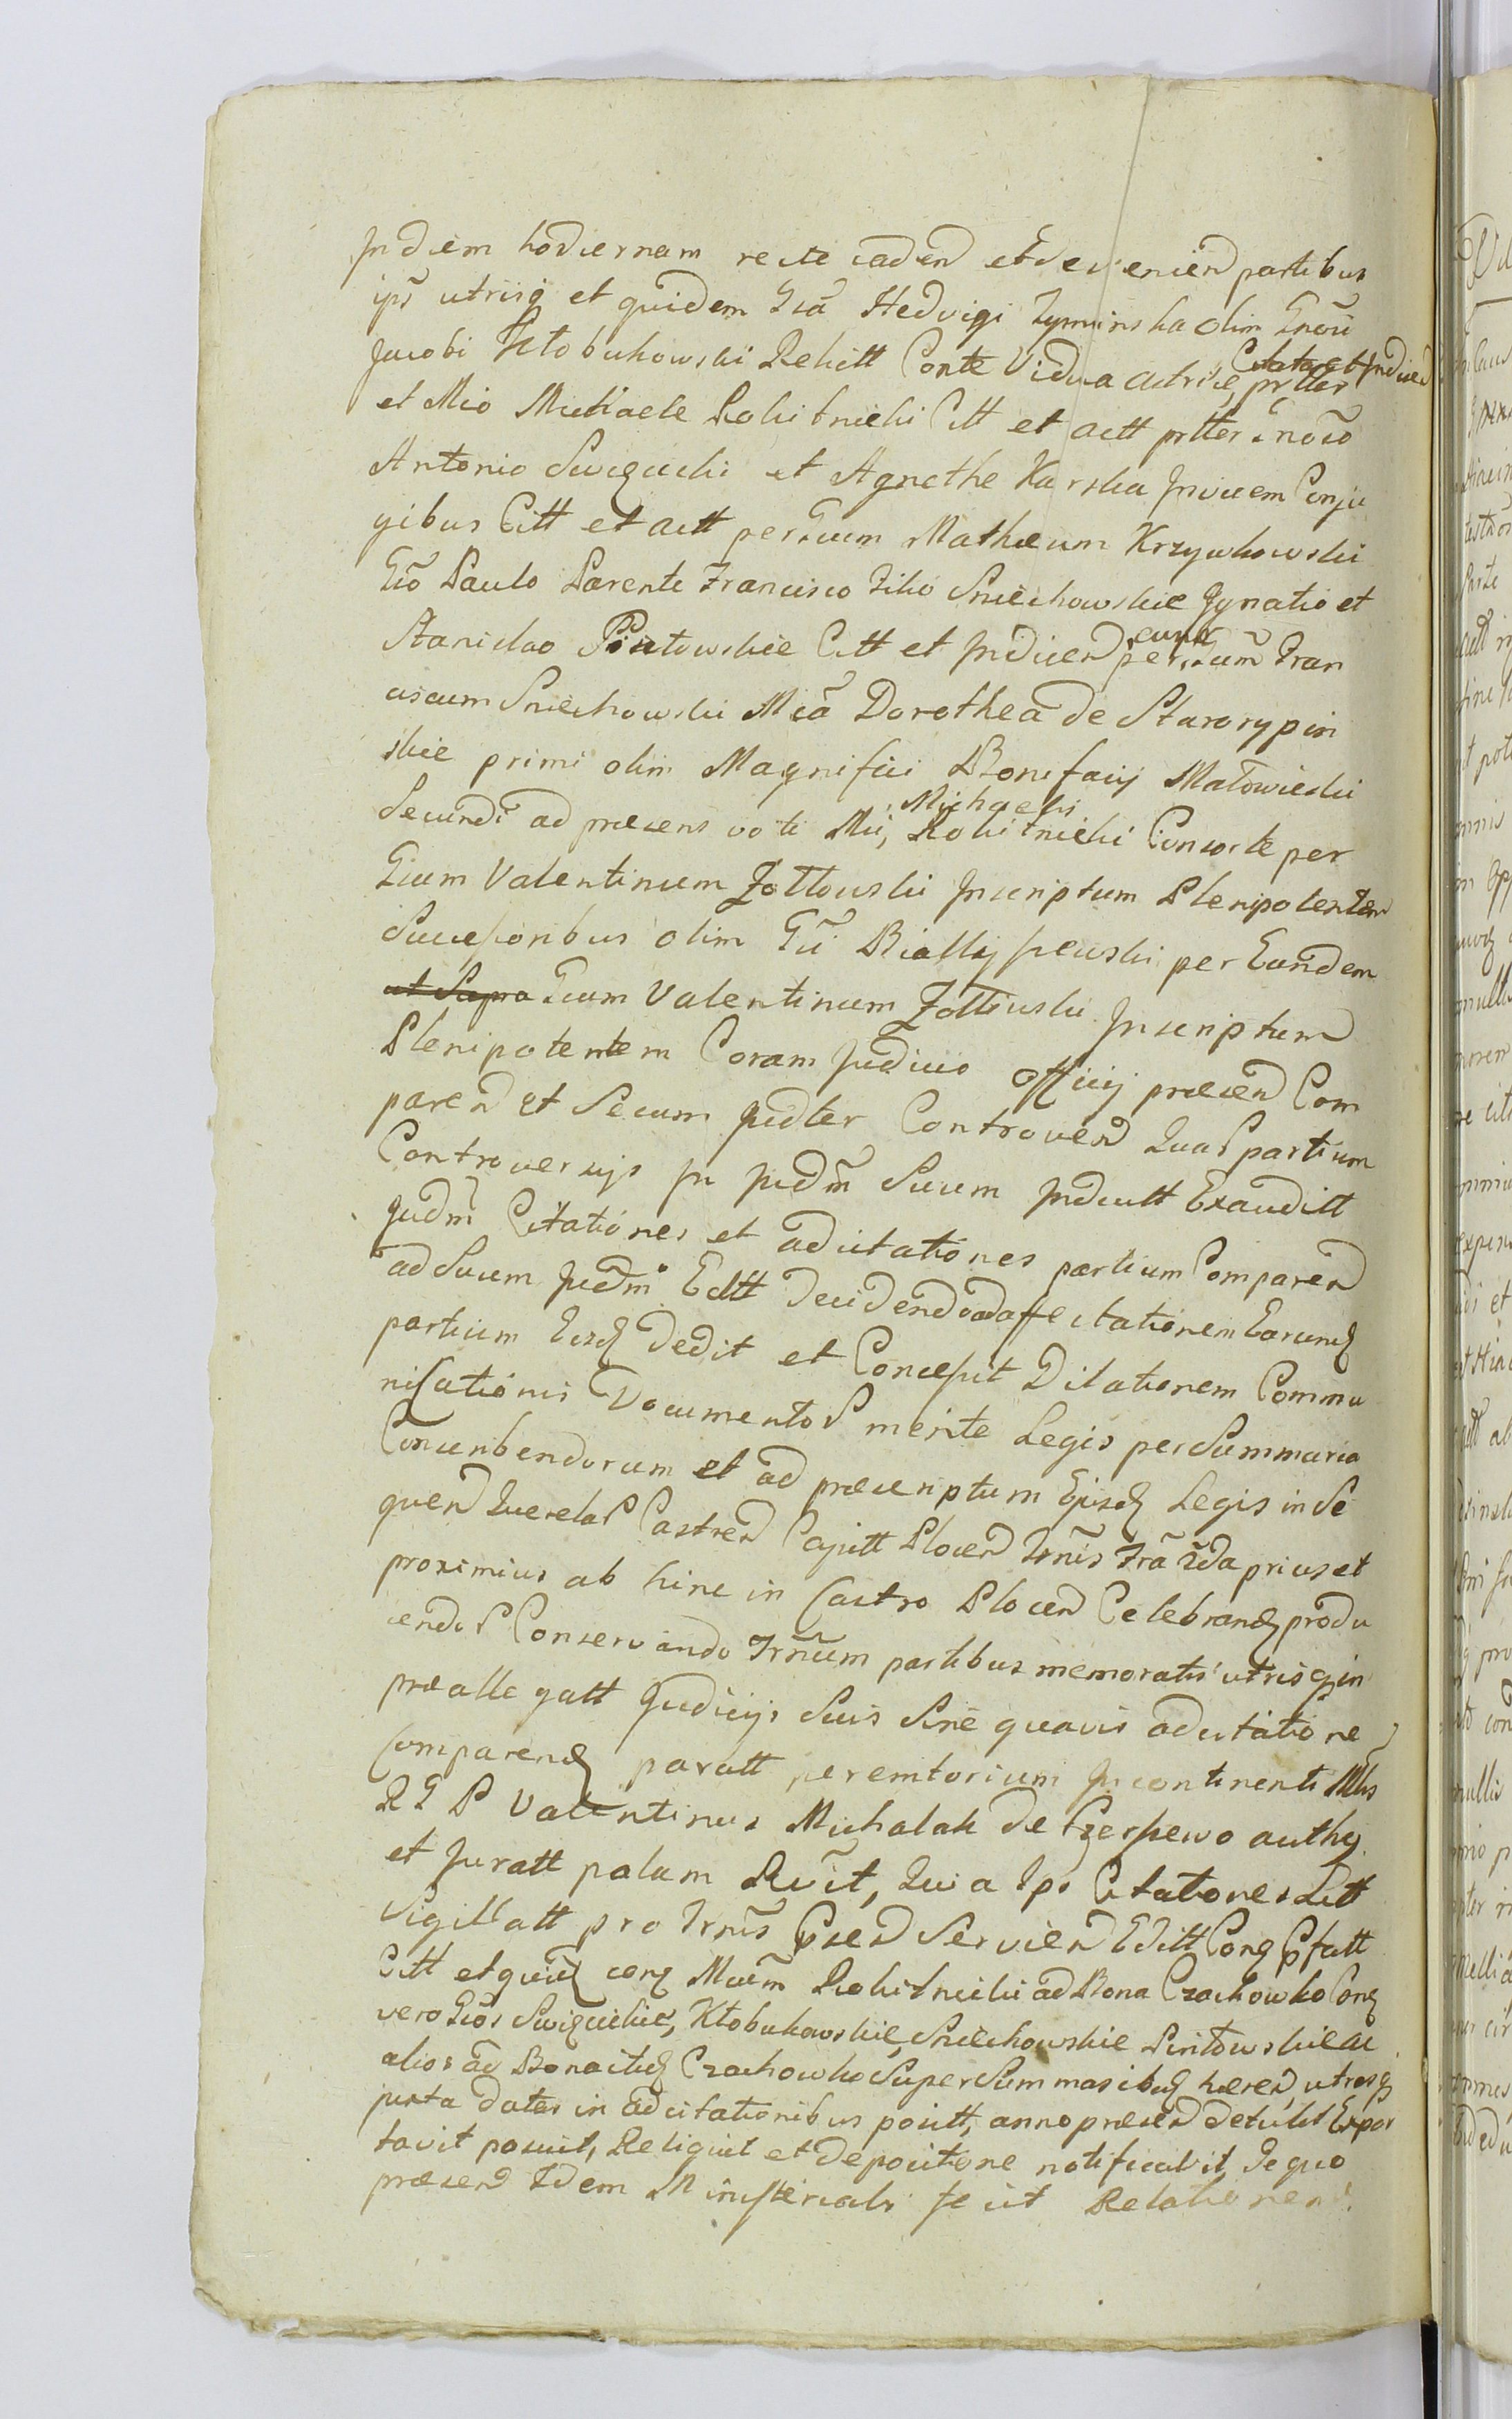 In diem hodiernam recte caden et devenien partibus
ips utrisq et quidem Gsa Hedvigi Zyminska olim Gnosi
Jacobi Kłobukowski Relictt Conte Vidua actrice, prtter Citata et Indicen
et Mco Michaele Rokitnicki Citt et actt prtter Gnoso
Antonio Swięcicki et Agnethe Karska Invicem Conju
gibus Citt et actt per suum Mathæum Krzywkowski
Gso Paulo Parente Francisco Filio Sniechowskie Ignatio et
Stanislao Piutowskie Citt et Indicen per eund Gsum Fran
ciscum Sniechowski Mca Dorothea de Starorypin
skie primi olim Magnifici Bonifacij Małowieski
Secundi ad præsens voti Mci, Michaelis Rokitnicki Consorte per
Gsum Valentinum Zołtowski Inscriptum Plenipotenten
Successoribus olim Gsi Biallyszewski per Eundem
ut Supra Gsum Valentinum Zołtowski Inscriptum
Plenipotentem Coram Judicio officij præsen Com
paren et Secum Judter Controven Quar partium
Controversijs In Judm Suum Inductt Exauditt
Judm Citationes et adcitationes partium Comparen
ad Suum Judm Editt decidendo ad affectationem Earund
partium Eisd dedit et Concessit Dilationem Commu
nicationis Documentor mente Legis per Summaria
Conscribendorum et ad præscriptum Ejusd Legis in Se
quen Querelar Castren Capitt Plocen Trnis Fra 2da prius et
proximius ab hinc in Castro Plocen Celebrand produ
cendor Conservando Trnum partibus memoratis utrisq in
præallegatt Judicijs Suis Sine quavis adcitatione
Comparend paratt peremtorium In continenti Mlis
R G P Valentinus Michalak de Czerszewo authy
et Juratt palam Rcvit, Quia Ips Citationes Litt
Sigillatt pro Trnis Psen Servien Editt Cong Psatt
Citt et quid cong Mcum Rokitnicki ad Bona Czachowko Cong
vero Gsos Swięcickie, Kłobukowskie, Sniechowskie Pintowskie ac
alios ad Bona itid Czachowko Super Summas ibid hæren, utrasq
juxta datas in adcitationibus positt, anno præsen detulit Expor
tavit posuit, Reliquit et depositione notificavit, De quo
præsen Idem Ministerialis fecit Relationem.